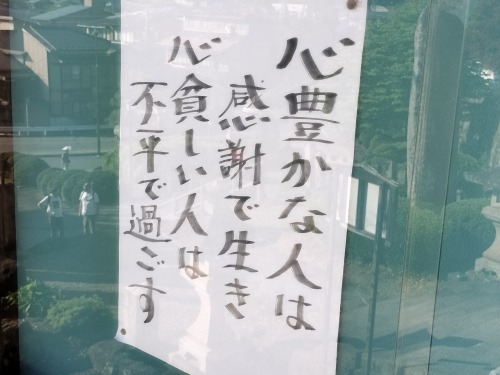 心豊かな人は
感謝で生き
心貧しい人は
不平で過ごす